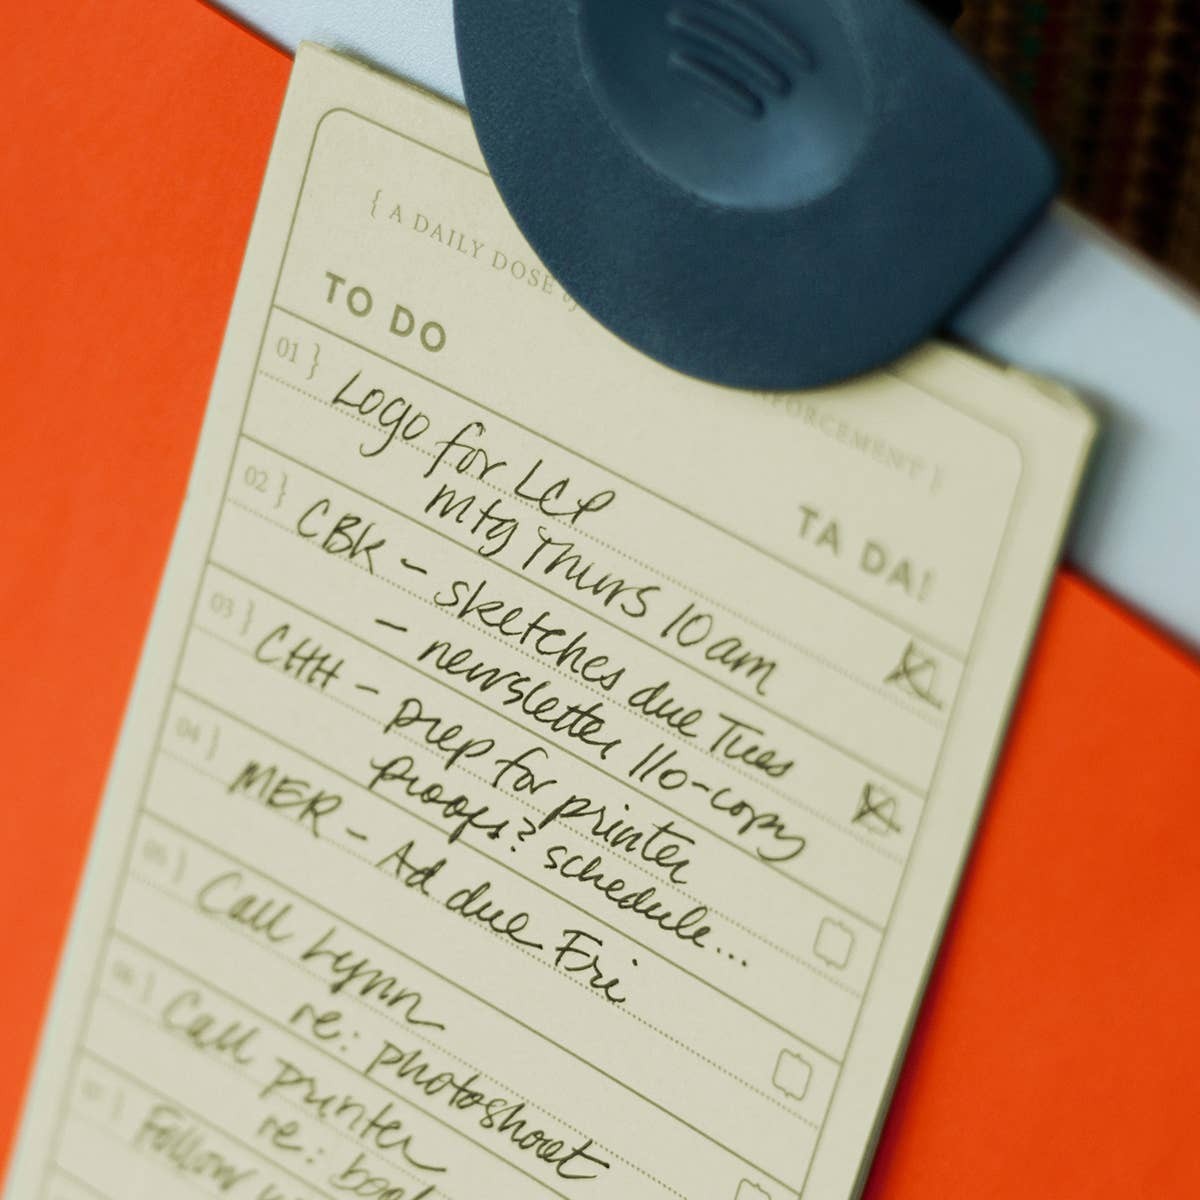 { A DAILY DOSE of
TO DO
TA DA!
01 } Logo for LCP
mtg Thurs 10am
02 } CBK - sketches due Tues
- newsletter 110-copy
03 } CHH - prep for printer
proofs? schedule...
04 } MER - Ad due Fri
05 } Call Lynn
re: photoshoot
06 } Call printer
re:
07 } Follow